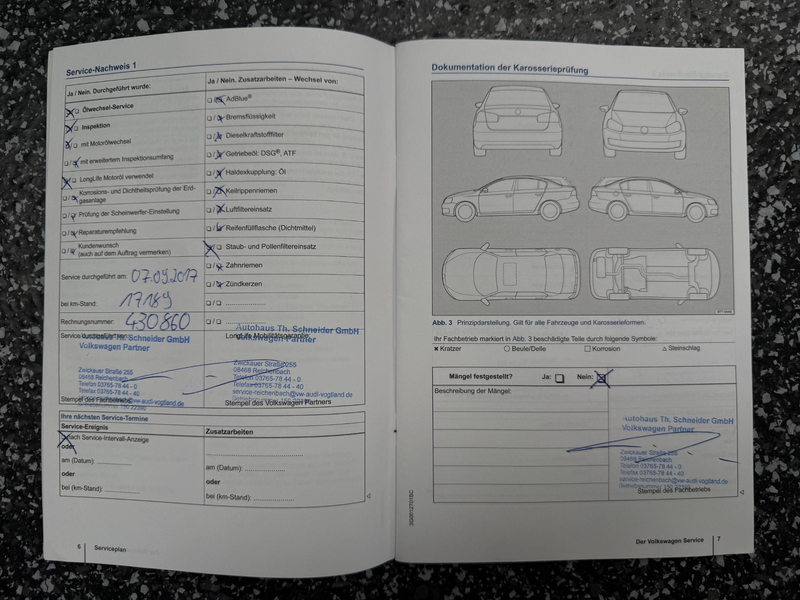 Service-Nachweis 1
Ja / Nein. Durchgeführt wurde:
Ja / Nein. Zusatzarbeiten – Wechsel von:
Ölwechsel-Service
AdBlue®
Inspektion
Bremsflüssigkeit
mit Motorölwechsel
Dieselkraftstofffilter
mit erweitertem Inspektionsumfang
Getriebeöl: DSG®, ATF
LongLife Motoröl verwendet
Haldexkupplung: Öl
Korrosions- und Dichtheitsprüfung der Erd-
gasanlage
Keilrippenriemen
Prüfung der Scheinwerfer-Einstellung
Luftfiltereinsatz
Reparaturempfehlung
Reifenfüllflasche (Dichtmittel)
Kundenwunsch
(auch auf dem Auftrag vermerken)
Staub- und Pollenfiltereinsatz
Zahnriemen
Zündkerzen
Service durchgeführt am: 07.09.2017
bei km-Stand: 17189
Rechnungsnummer: 430860
Autohaus Th. Schneider GmbH
Volkswagen Partner
LongLife Mobilitätsgarantie
Zwickauer Straße 255
08468 Reichenbach
Telefon 03765-78 44 - 0
Telefax 03765-78 44 - 40
service-reichenbach@vw-audi-vogtland.de
Stempel des Fachbetriebs
Zwickauer Straße 255
08468 Reichenbach
Telefon 03765-78 44 - 0
Telefax 03765-78 44 - 40
service-reichenbach@vw-audi-vogtland.de
Stempel des Volkswagen Partners
Ihre nächsten Service-Termine
Service-Ereignis
Zusatzarbeiten
nach Service-Intervall-Anzeige
oder
am (Datum):
oder
bei (km-Stand):
am (Datum):
oder
bei (km-Stand):
6 Serviceplan
Dokumentation der Karosserieprüfung
Abb. 3 Prinzipdarstellung. Gilt für alle Fahrzeuge und Karosserieformen.
Ihr Fachbetrieb markiert in Abb. 3 beschädigte Teile durch folgende Symbole:
Kratzer
Beule/Delle
Korrosion
Steinschlag
Mängel festgestellt? Ja: Nein:
Beschreibung der Mängel:
Autohaus Th. Schneider GmbH
Volkswagen Partner
Zwickauer Straße 255
08468 Reichenbach
Telefon 03765-78 44 - 0
Telefax 03765-78 44 - 40
service-reichenbach@vw-audi-vogtland.de
Stempel des Fachbetriebs
Der Volkswagen Service 7